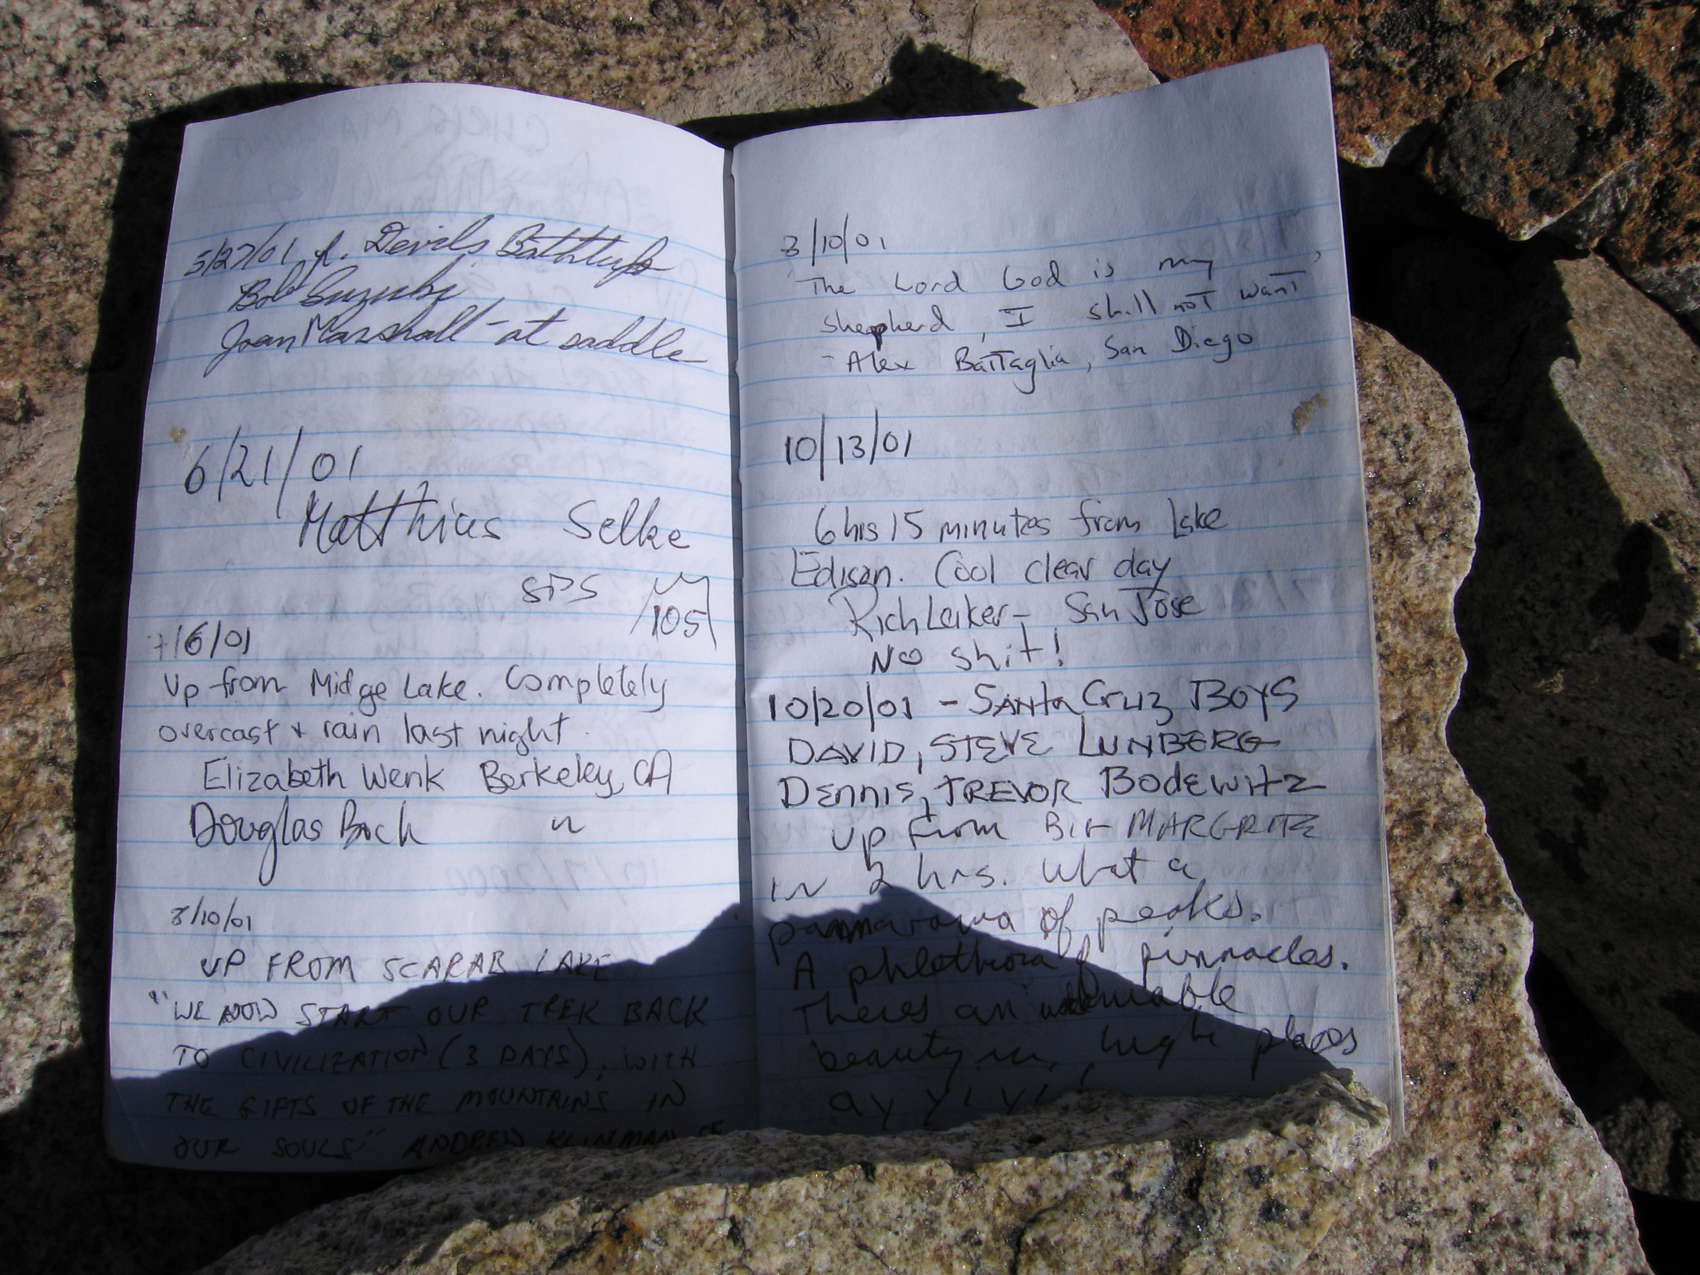 5/27/01 fr. Devils Bathtub
Bob Suzuki
Joan Marshall - at saddle
6/21/01
Matthias Selke
SPS
105
7/6/01
Up from Midge Lake. Completely
overcast + rain last night.
Elizabeth Wenk Berkeley, CA
Douglas Bock "
8/10/01
UP FROM SCARAB LAKE
"WE NOW START OUR TREK BACK
TO CIVILIZATION (3 DAYS), WITH
THE GIFTS OF THE MOUNTAINS IN
OUR SOULS" ANDREW KLINMAN SF
8/10/01
The Lord God is my
shepherd, I shall not want
- Alex Battaglia, San Diego
10/13/01
6 hrs 15 minutes from Lake
Edison. Cool clear day
Rich Leiker - San Jose
No shit!
10/20/01 - SANTA CRUZ BOYS
DAVID, STEVE LUNBERG
DENNIS, TREVOR BODEWITZ
up from BIG MARGRITE
IN 2 hrs. What a
pannarama of peaks.
A phlethora of pinnacles.
Theres an undeniable
beauty in high places
ay yi yi!